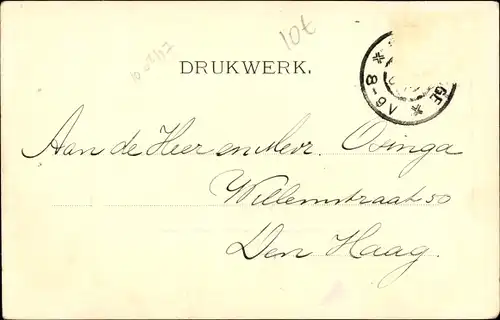 10t
DRUKWERK.
8-9V
GE
Aan de Heer en Mevr. Osinga
Willemstraat 50
Den Haag.